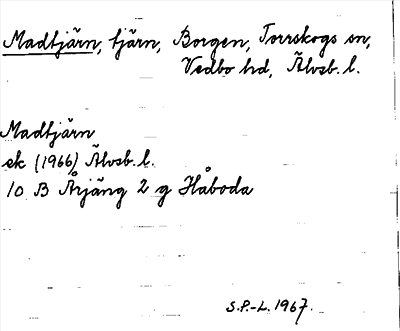 Madtjärn, tjärn, Borgen, Torrskogs sn,
Vedbo hd, Älvsb. l.
Madtjärn
ek (1966) Älvsb. l.
10 B Årjäng 2 g Håboda
S.P.-L. 1967.